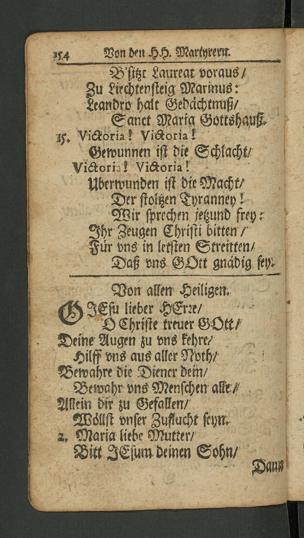 254 Von den H.H. Martyrern.
B'sitzt Laureat voraus/
Zu Liechtensteig Marinus:
Leandro halt Gedächtnuß/
Sanct Maria Gottshauß.
15. Victoria! Victoria!
Gewunnen ist die Schlacht/
Victoria! Victoria!
Uberwunden ist die Macht/
Der stoltzen Tyranney!
Wir sprechen jetzund frey:
Ihr Zeugen Christi bitten/
Für vns in letsten Streitten/
Daß vns GOtt gnädig sey.
Von allen Heiligen.
O JEsu lieber HErre/
O Christe treuer GOtt/
Deine Augen zu vns kehre/
Hilff vns aus aller Noth/
Bewahre die Diener dein/
Bewahr vns Menschen alle/
Allein dir zu Gefallen/
Wöllst vnser Zuflucht seyn.
2. Maria liebe Mutter/
Bitt JEsum deinen Sohn/
Dann